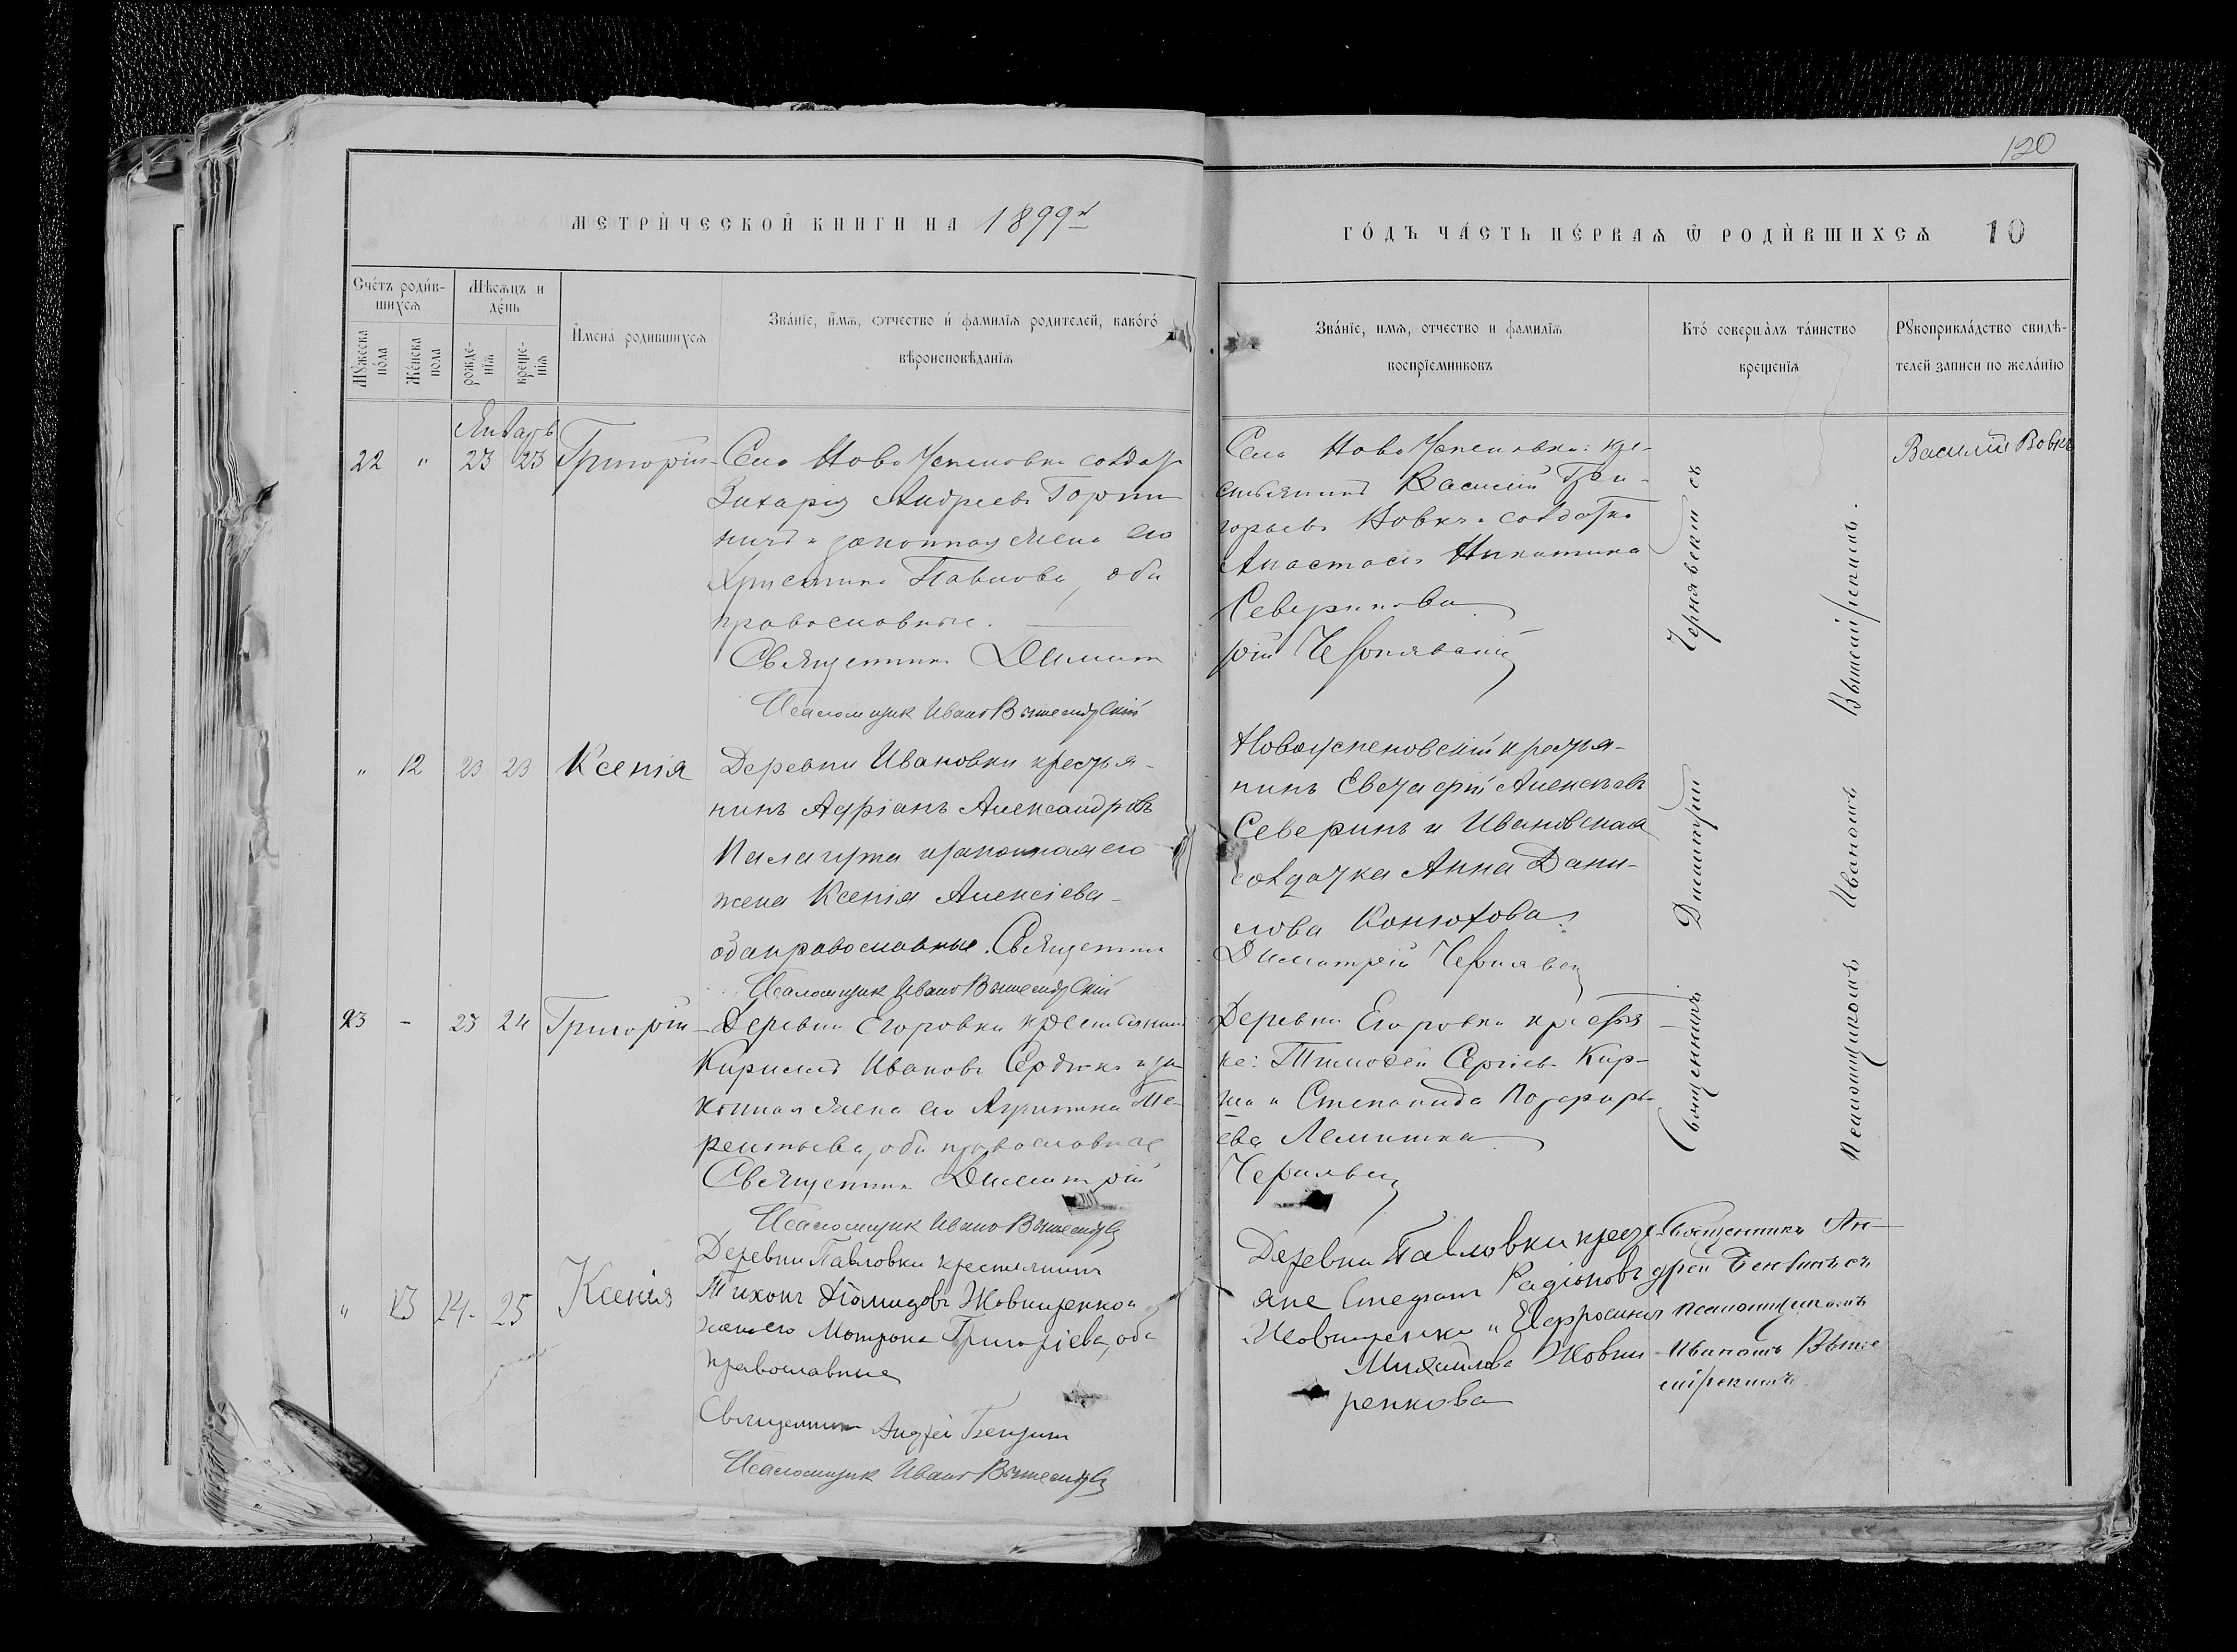 120
МЕТРИЧЕСКОЙ КНИГИ НА 1899й
ГОДЪ ЧАСТЬ ПЕРВАЯ Ѿ РОДИВШИХСЯ 10
Счетъ родив-
шихся
Мѣсяцъ и
день
Мужеска
пола
Женска
пола
рожде-
нія
креще-
нія
Имена родившихся
Званіе, имя, отчество и фамилія родителей, какого
вѣроисповѣданія
Званіе, имя, отчество и фамилія
воспріемниковъ
Кто совершалъ таинство
крещенія
Рукоприкладство свидѣ-
телей записи по желанію
Январь
22 " 23 23 Григорій
Села Ново Успеновки солдатъ
Захарія Андреевъ
и законная жена его
Христина Павлова, оба
православные.
Священникъ Димит
Псаломщикъ Иванъ Вышемірскій
Села Ново Успеновки: кре-
стьянинъ Василій Гри-
горьевъ Вовкъ и солдатка
Анастасія
Северинова
рій Чернявскій
Василій Вовкъ
" 12 23 23 Ксенія
Деревни Ивановки крестья-
нинъ Адріанъ Александровъ
Палагута и законная его
жена Ксенія Алексіева
оба православные. Священникъ
Псаломщикъ Иванъ Вышемірскій
Новоуспеновскій крестья-
нинъ Евстафій Алексѣевъ
Северинъ и Ивановская
солдатка Анна Дани-
лова Конюхова.
Димитрій Чернявскій
23 - 23 24 Григорій
Деревни Егоровки крестьянинъ
Кириллъ Ивановъ Сердюкъ и за-
конная жена его Агрипина Те-
рентьева, оба православные
Священникъ Димитрій
Псаломщикъ Иванъ Вышемірскій
Деревни Егоровки крестья
не: Тимофей Сергіевъ Кир-
и Степанида
ева
Чернявскій
Священникъ Димитрій Чернявскій съ
Псаломщикомъ Иваномъ Вышемірскимъ.
" 13 24 25 Ксенія
Деревни Павловки крестьянинъ
Тихонъ Жовниренко и
жена его Мотрона Григоріева, оба
православные
Священникъ Андрей
Псаломщикъ Иванъ Вышемірскій
Деревни Павловки кресть
яне Стефанъ Радіоновъ
Жовниренко и Евфросинія
Михайлова Жовни
ренкова
Священникъ Ан-
дрей съ
псаломщикомъ
Иваномъ Выше
мірскимъ